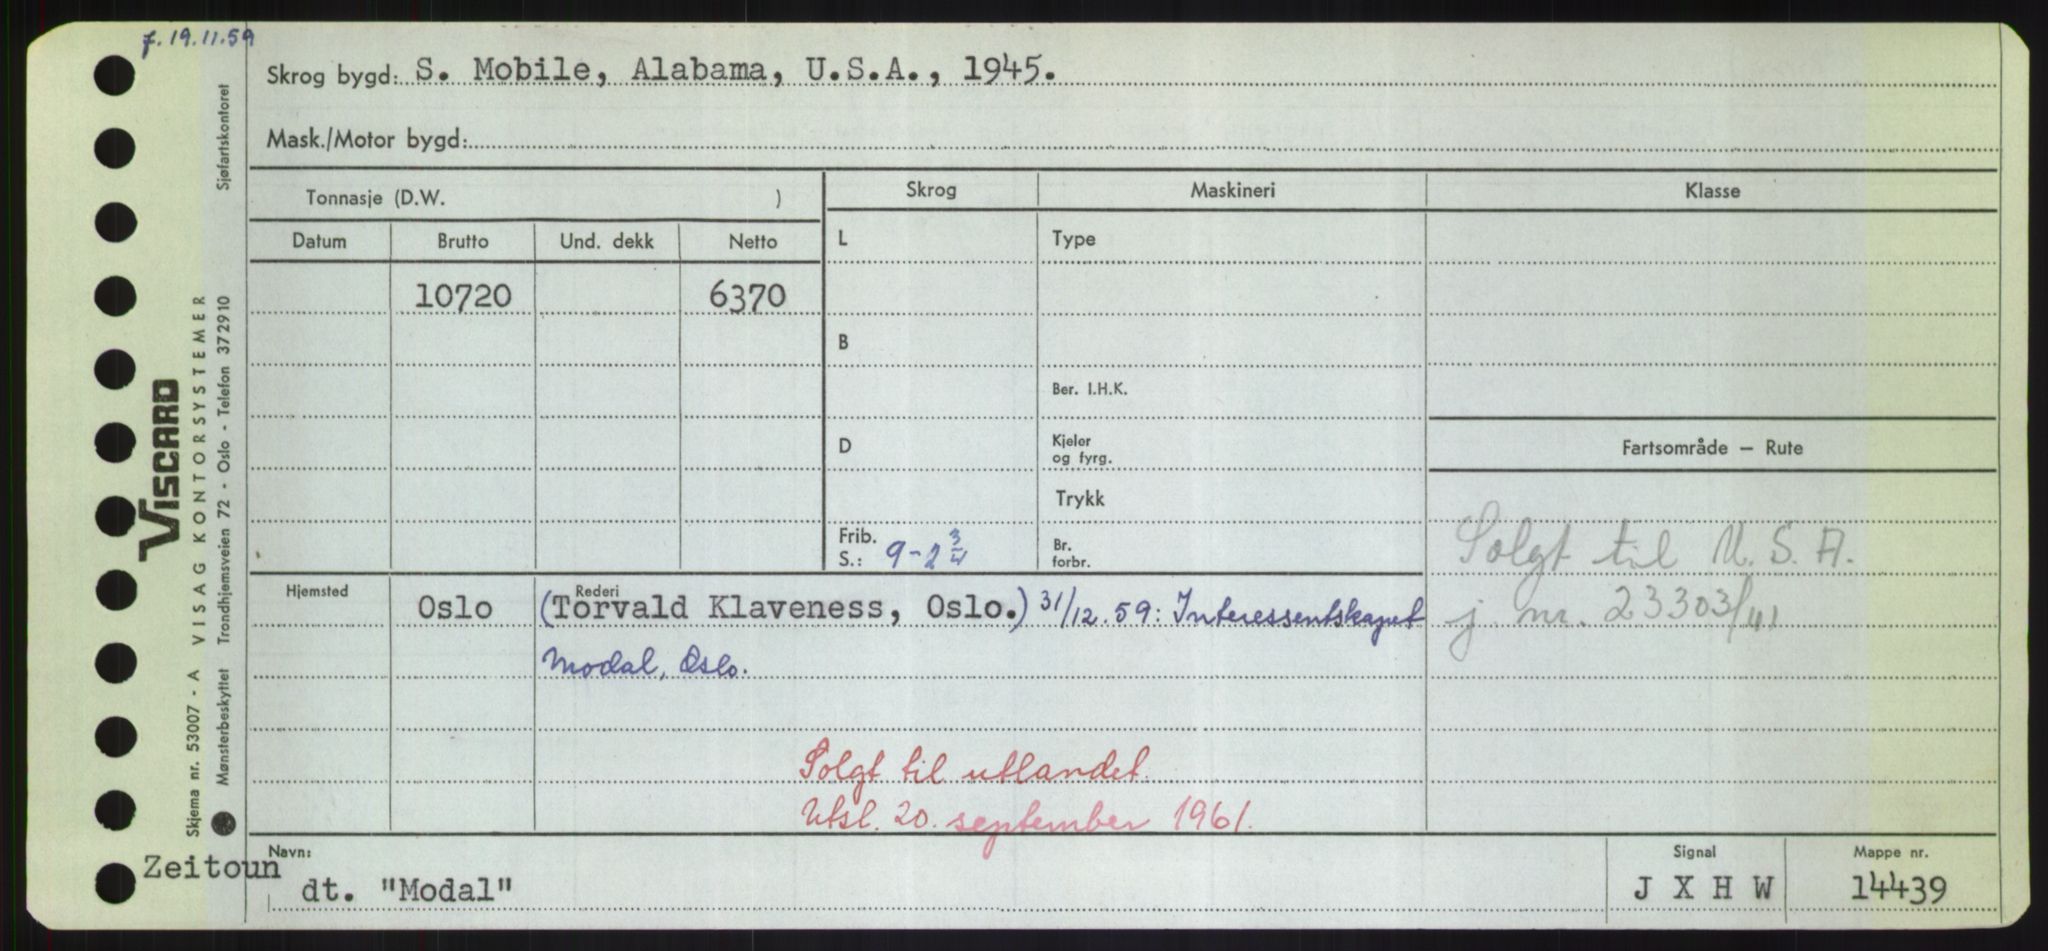 f. 19.11.59
Skrog bygd: S. Mobile, Alabama, U.S.A., 1945.
Mask./Motor bygd:
Tonnasje (D.W. )
Skrog
Maskineri
Klasse
Datum
Brutto
Und. dekk
Netto
L
Type
10720
6370
B
Ber. I.H.K.
D
Kjeler
og fyrg.
Fartsområde — Rute
Trykk
Frib.
S.: 9-2 3/4
Br.
forbr.
Solgt til U.S.A.
j. nr. 23303/41
Hjemsted
Oslo
Rederi
(Torvald Klaveness, Oslo.) 31/12.59: Interessentskapet
Modal, Oslo.
Solgt til utlandet.
Utsl. 20. september 1961.
Navn:
Zeitoun
dt. "Modal"
Signal
J X H W
Mappe nr.
14439
VISCARD
Skjema nr. 53007 - A VISAG KONTORSYSTEMER
Mønsterbeskyttet Trondhjemsveien 72 - Oslo - Telefon 372910 Sjøfartskontoret